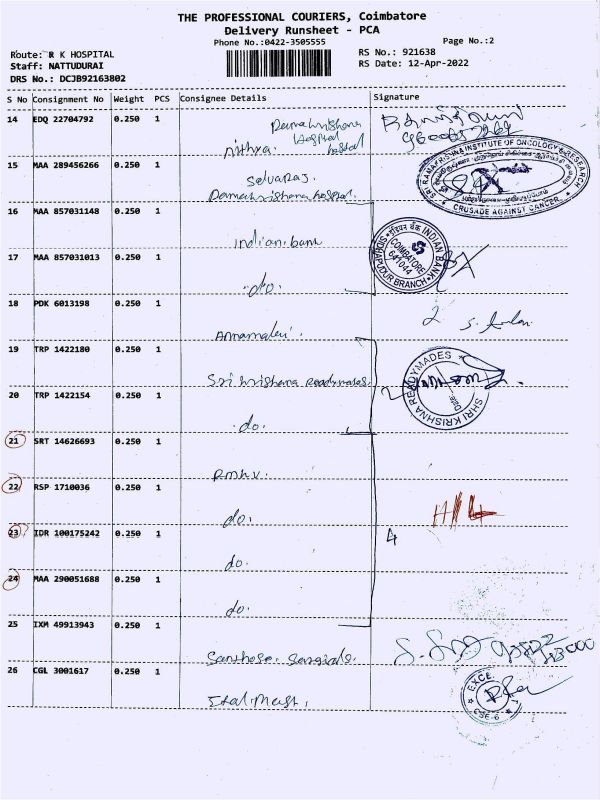 THE PROFESSIONAL COURIERS, Coimbatore
Delivery Runsheet - PCA
Phone No.:0422-3505555
Page No.:2
Route: R K HOSPITAL
RS No.: 921638
Staff: NATTUDURAI
RS Date: 12-Apr-2022
DRS No.: DCJB92163802
S No Consignment No Weight PCS Consignee Details Signature
14 EDQ 22704792 0.250 1
Hospital
hostel
nithya.
15 MAA 289456266 0.250 1
Selvaraj.
SRI RAMAKRISHNA INSTITUTE OF ONCOLOGY & RESEARCH
CRUSADE AGAINST CANCER
16 MAA 857031148 0.250 1
indian bank
INDIAN BANK
COIMBATORE
641044
BRANCH
17 MAA 857031013 0.250 1
do.
18 PDK 6013198 0.250 1
2
19 TRP 1422180 0.250 1
Sri krishana readymades.
2
SHRI KRISHNA READYMADES
Date:
20 TRP 1422154 0.250 1
do.
21 SRT 14626693 0.250 1
22 RSP 1710036 0.250 1
do.
23 IDR 100175242 0.250 1
do.
4
24 MAA 290051688 0.250 1
do.
25 IXM 49913943 0.250 1
26 CGL 3001617 0.250 1
EXCE
CBE-6